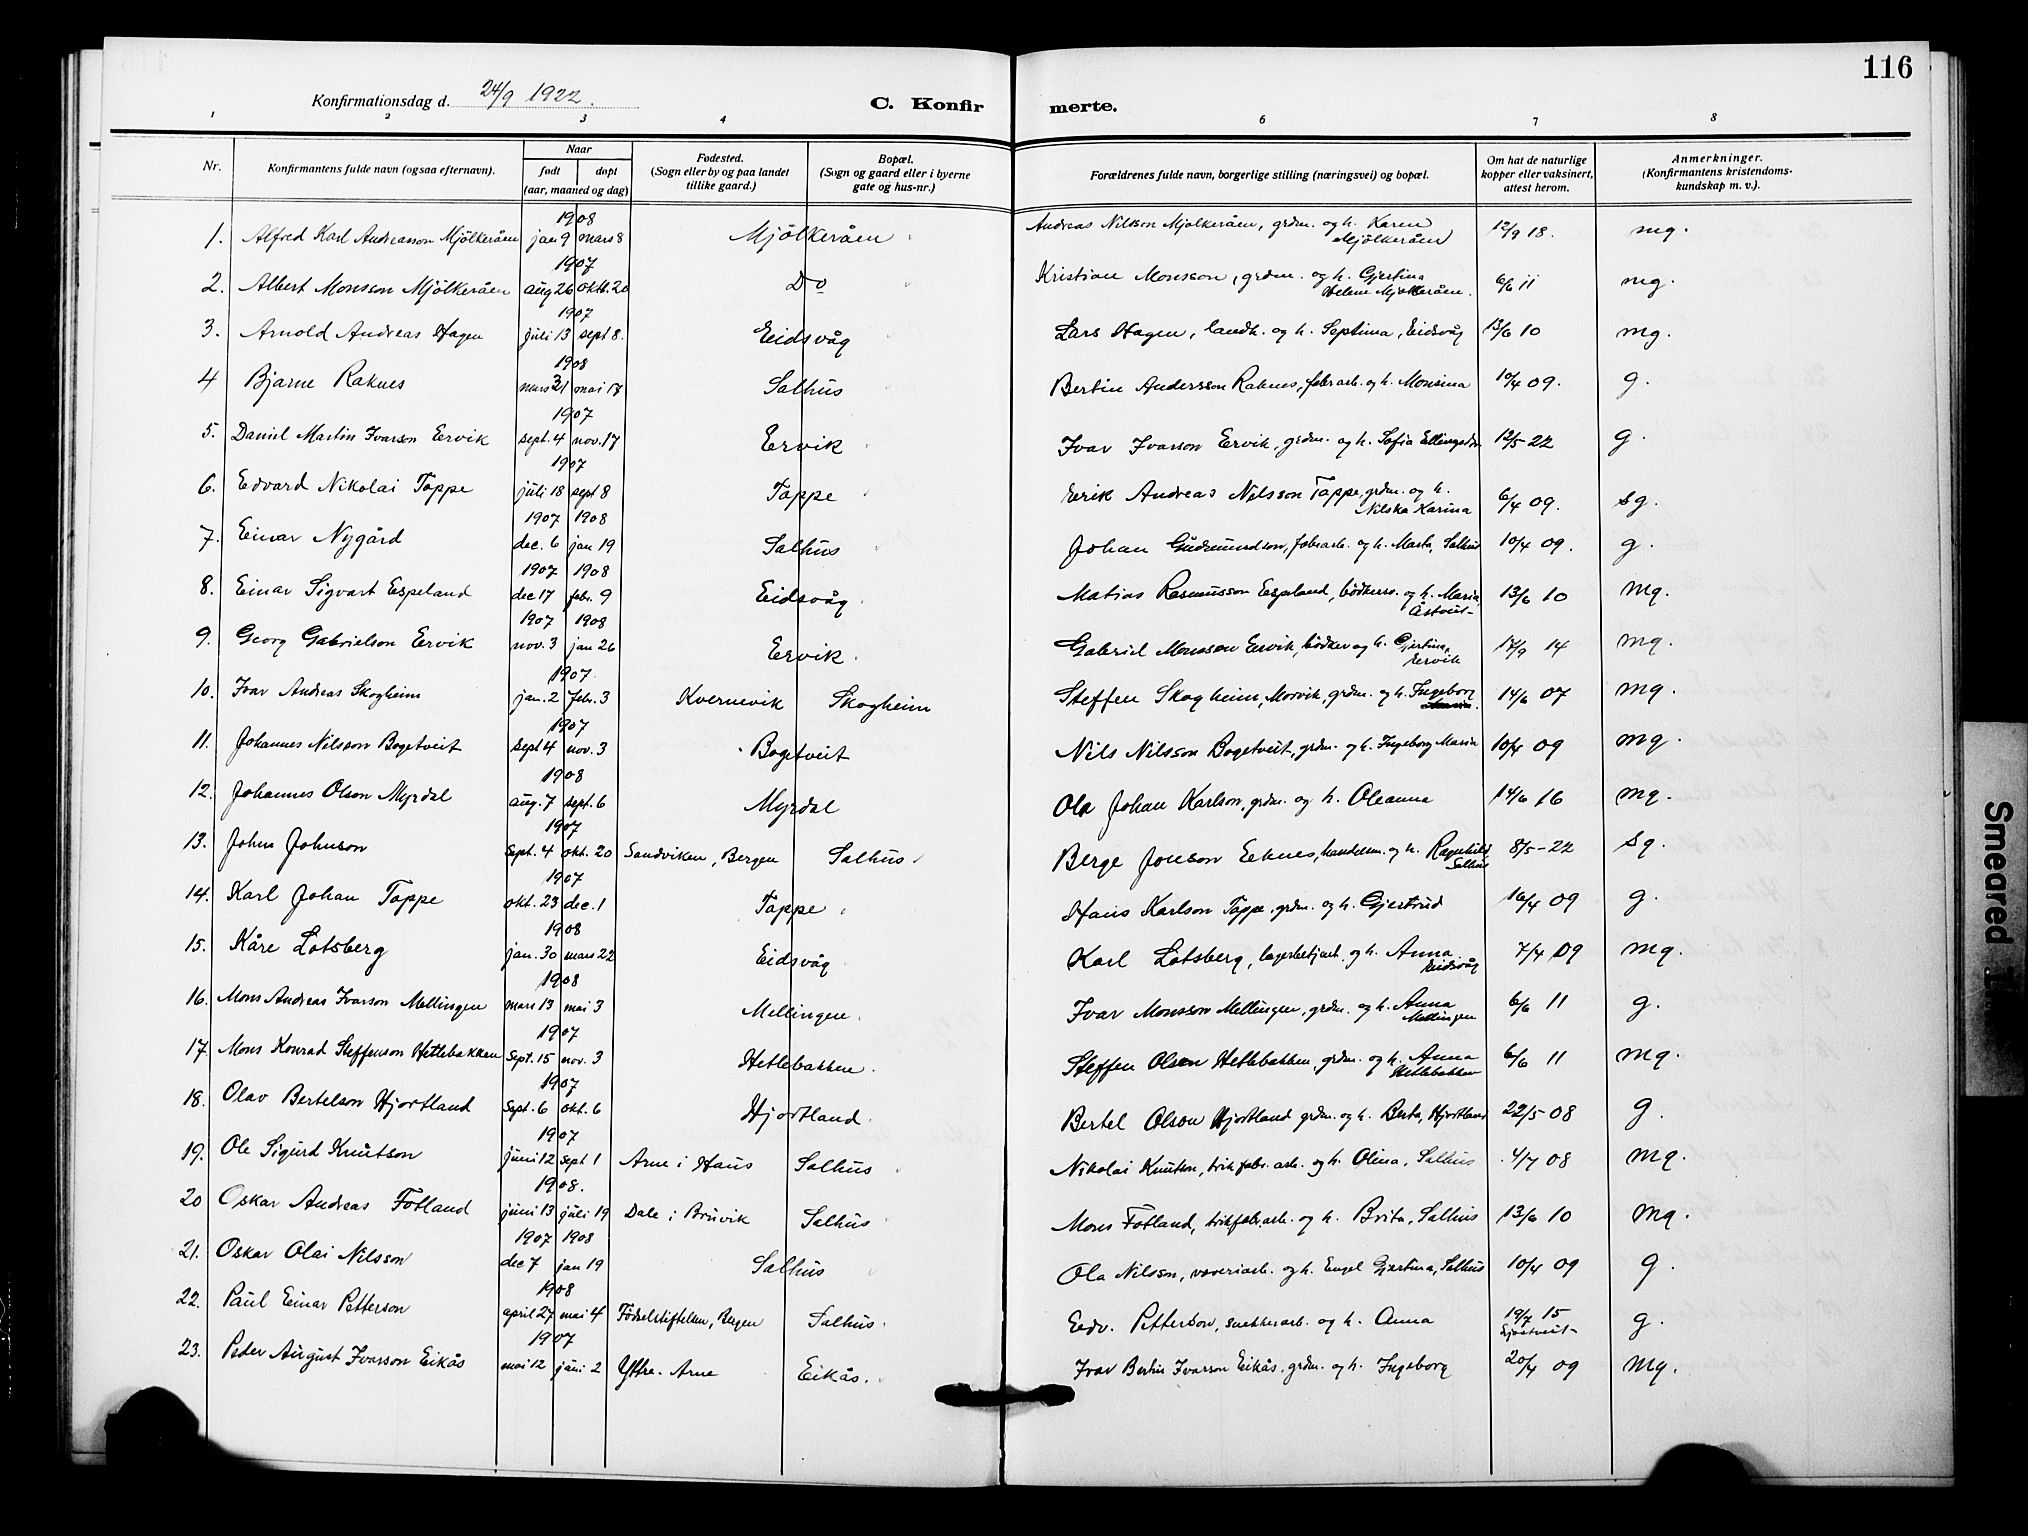 116
Konfirmationsdag d. 24/9 1922.
C. Konfirmerte.
1 2 3 4 6 7 8
Nr. Konfirmantens fulde navn (ogsaa efternavn). Naar født døpt (aar, maaned og dag) Fødested. (Sogn eller by og paa landet tillike gaard.) Bopæl. (Sogn og gaard eller i byerne gate og hus-nr.) Forældrenes fulde navn, borgerlige stilling (næringsvei) og bopæl. Om hat de naturlige kopper eller vaksinert, attest herom. Anmerkninger. (Konfirmantens kristendomskundskap m. v.).
1. Alfred Karl Andreasson Mjölkeråen 1908 jan 9 mars 8 Mjölkeråen Andreas Nilsson Mjølkeråen, grdm. og h. Karen Mjölkeråen 12/9 18. mg.
2. Albert Monsson Mjölkeråen 1907 aug 26 oktb. 20 Do Kristian Monsson, grdm. og h. Gjertina Helene Mjølkeråen. 6/6 11 mg.
3. Arnold Andreas Hagen 1907 juli 13 sept 8. Eidsvåg Lars Hagen, landh. og h. Septima, Eidsvåg 13/6 10 mg.
4 Bjarne Raknes 1908 mars 31 mai 17 Salhus Bertin Andersson Raknes, fabr.arb. og h. Monsina 10/4 09. g.
5. Daniel Martin Ivarson Ervik 1907 sept. 4 nov. 17 Ervik Ivar Ivarson Ervik, grdm. og h. Sofia Ellingsdtr 12/5-22 g.
6. Edvard Nikolai Tøppe 1907 juli 18 sept 8 Tøppe Erik Andreas Nilsson Tøppe, grdm. og h. Nilska Karina 6/4 09. sg.
7. Einar Nygård 1907 1908 dec. 6 jan 19 Salhus Johan Gudmundson, fabr.arb. og h. Marta, Salhus 10/4 09. g.
8. Einar Sigvart Espeland 1907 1908 dec 17 febr. 9 Eidsvåg Matias Rasmusson Espeland, bødkersv. og h. Maria, Åstveit- 13/6 10 mg.
9. Georg Gabrielson Ervik 1907 1908 nov. 3 jan 26 Ervik. Gabriel Monsson Ervik, bødker og h. Gjertina, Ervik 17/9 14 mg.
10. Ivar Andreas Skogheim 1907. jan. 2 febr. 3 Kvernevik Skogheim Steffen Skogheim, Morvik, grdm. og h. Ingeborg 14/6 07 mg.
11. Johannes Nilsson Bogetveit 1907 sept 4 nov. 3 Bogetveit Nils Nilsson Bogetveit, grdm. og h. Ingeborg Maria 10/4 09 mg.
12. Johannes Olson Myrdal 1908 aug. 7 sept. 6 Myrdal Ola Johan Karlson, grdm. og h. Oleanna 14/6 16 mg.
13. Johns Johnson 1907 sept. 4 okt. 20 Sandviken, Bergen Salhus Berge Jonson Eknes, handelsm. og h. Ragnhild Salhus 8/5-22 sg.
14. Karl Johan Tøppe 1907 okt. 23 dec. 1 Tøppe Hans Karlson Tøppe, grdm. og h. Gjertrud 16/4 09 g.
15. Kåre Lotsberg 1908 jan. 30 mars 22 Eidsvåg Karl Lotsberg, lagerbetjent og h. Anna Eidsvåg 7/4 09 mg.
16. Mons Andreas Ivarson Mellingen 1908 mars 13 mai 3 Mellingen. Ivar Monsson Mellingen, grdm. og h. Anna Mellingen 6/6 11 g.
17. Mons Konrad Steffenson Hetlebakken 1907 Sept. 15 nov. 3 Hetlebakken. Steffen Olsen Hetlebakken, grdm. og h. Anna Hetlebakken 6/6 11 mg.
18. Olav Bertelson Hjortland 1907 Sept. 6 okt. 6 Hjortland. Bertel Olson Hjortland grdm. og h. Berta, Hjortland 22/5-08 g.
19. Ole Sigurd Knutson 1907 juni 12 sept 1 Arne i Haus Salhus Nikolai Knutson, trik.fabr.arb. og h. Olina, Salhus 4/7 08 mg.
20 Oskar Andreas Fotland 1908. juni 13 juli 19 Dale i Bruvik Salhus Mons Fotland, trikfabr.arb. og h. Brita, Salhus 13/6 10 mg.
21. Oskar Olai Nilsson 1907 1908 dec 7 jan 19 Salhus Ola Nilsson, væveriarb. og h. Engel Gjertina, Salhus 10/4 09 g.
22. Paul Einar Petterson 1908 april 27 mai 4 Fødselstiftelsen, Bergen Salhus. Edv. Petterson, snekkerarb. og h. Anna 19/7 15 g.
23. Peder August Ivarson Eikås 1907 mai 12 juni 2 Ytre-Arne Eikås. Ivar Bertin Ivarson Eikås, grdm. og h. Ingeborg 20/4 09 mg.
Smeared